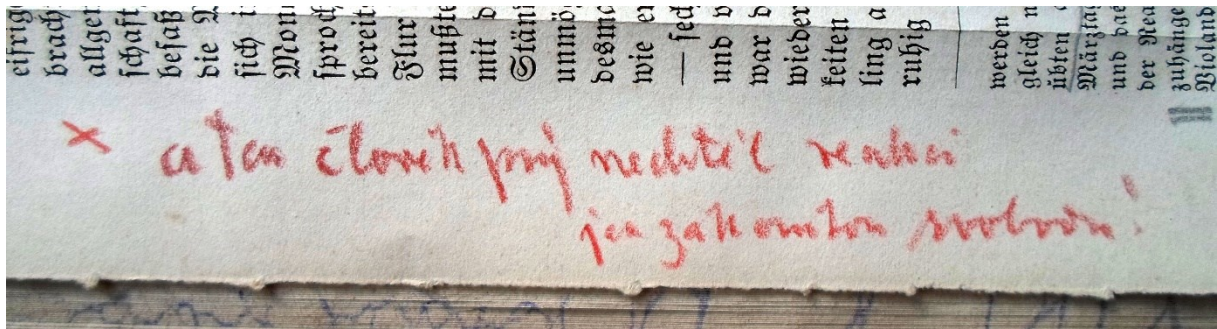 eifrig
brach
allger
schaft
besaß
die
sich i
Mon
sproch
bereit
Flur
mußte
mit
Stän
unmög
desm
wie er
— sech
und
war
wieder
keiten
ling a
ruhig
werden
gleich n
übten
Märztag
und
der Rea
zuhänge
Violand
× a ten člověk prý nechtěl reakci
jen zákonitou svobodu!